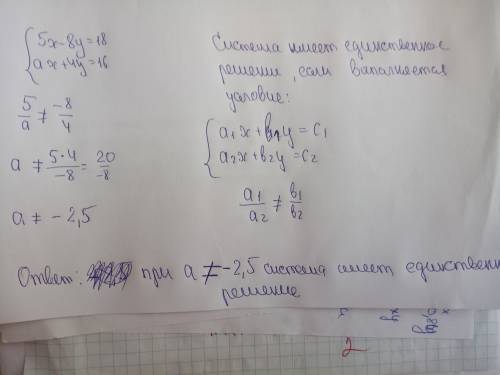 {5x-8y=18
{ax+4y=16
5/a ≠ -8/4
a ≠ 5·4/-8 = 20/-8
a ≠ -2,5
Система имеет единственное
решени, если выполняется
условие:
{a₁x+b₁y=c₁
{a₂x+b₂y=c₂
a₁/a₂ ≠ b₁/b₂
Ответ: при a ≠ -2,5 система имеет единствен
решение
2